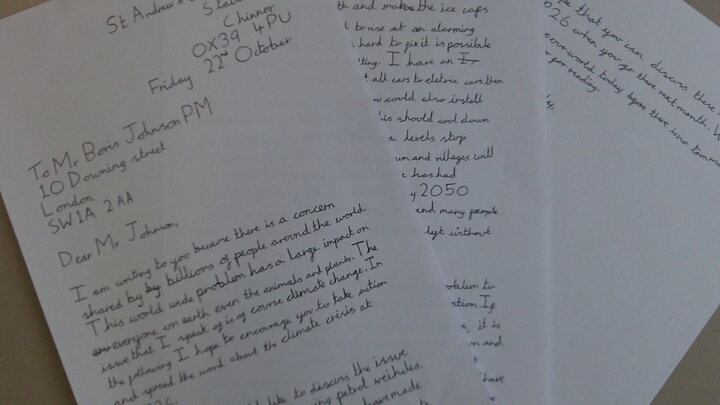 St Andrew's
Chinnor
OX39 4PU
Friday 22nd October
To Mr Boris Johnson PM
10 Downing street
London
SW1A 2AA
Dear Mr Johnson,
I am writing to you because there is a concern
shared by by billions of people around the world.
This world wide problem has a large impact on
everyone on earth even the animals and plants. The
issue that I speak of is of course climate change. In
the following I hope to encourage you to take action
and spread the word about the climate crisis at
like to discuss the issue
petrol veihcles.
have made
th and makes the ice caps
to rise at an alarming
hard to fix it is possible
I have an
all cars to eletric cars then
could also install
his should cool down
a levels stop
and villages will
has had
2050
and many people
left without
oblem to
If
it is
and
have
that you can discuss these
26 when you go there next month.
world today before there is no
for reading.